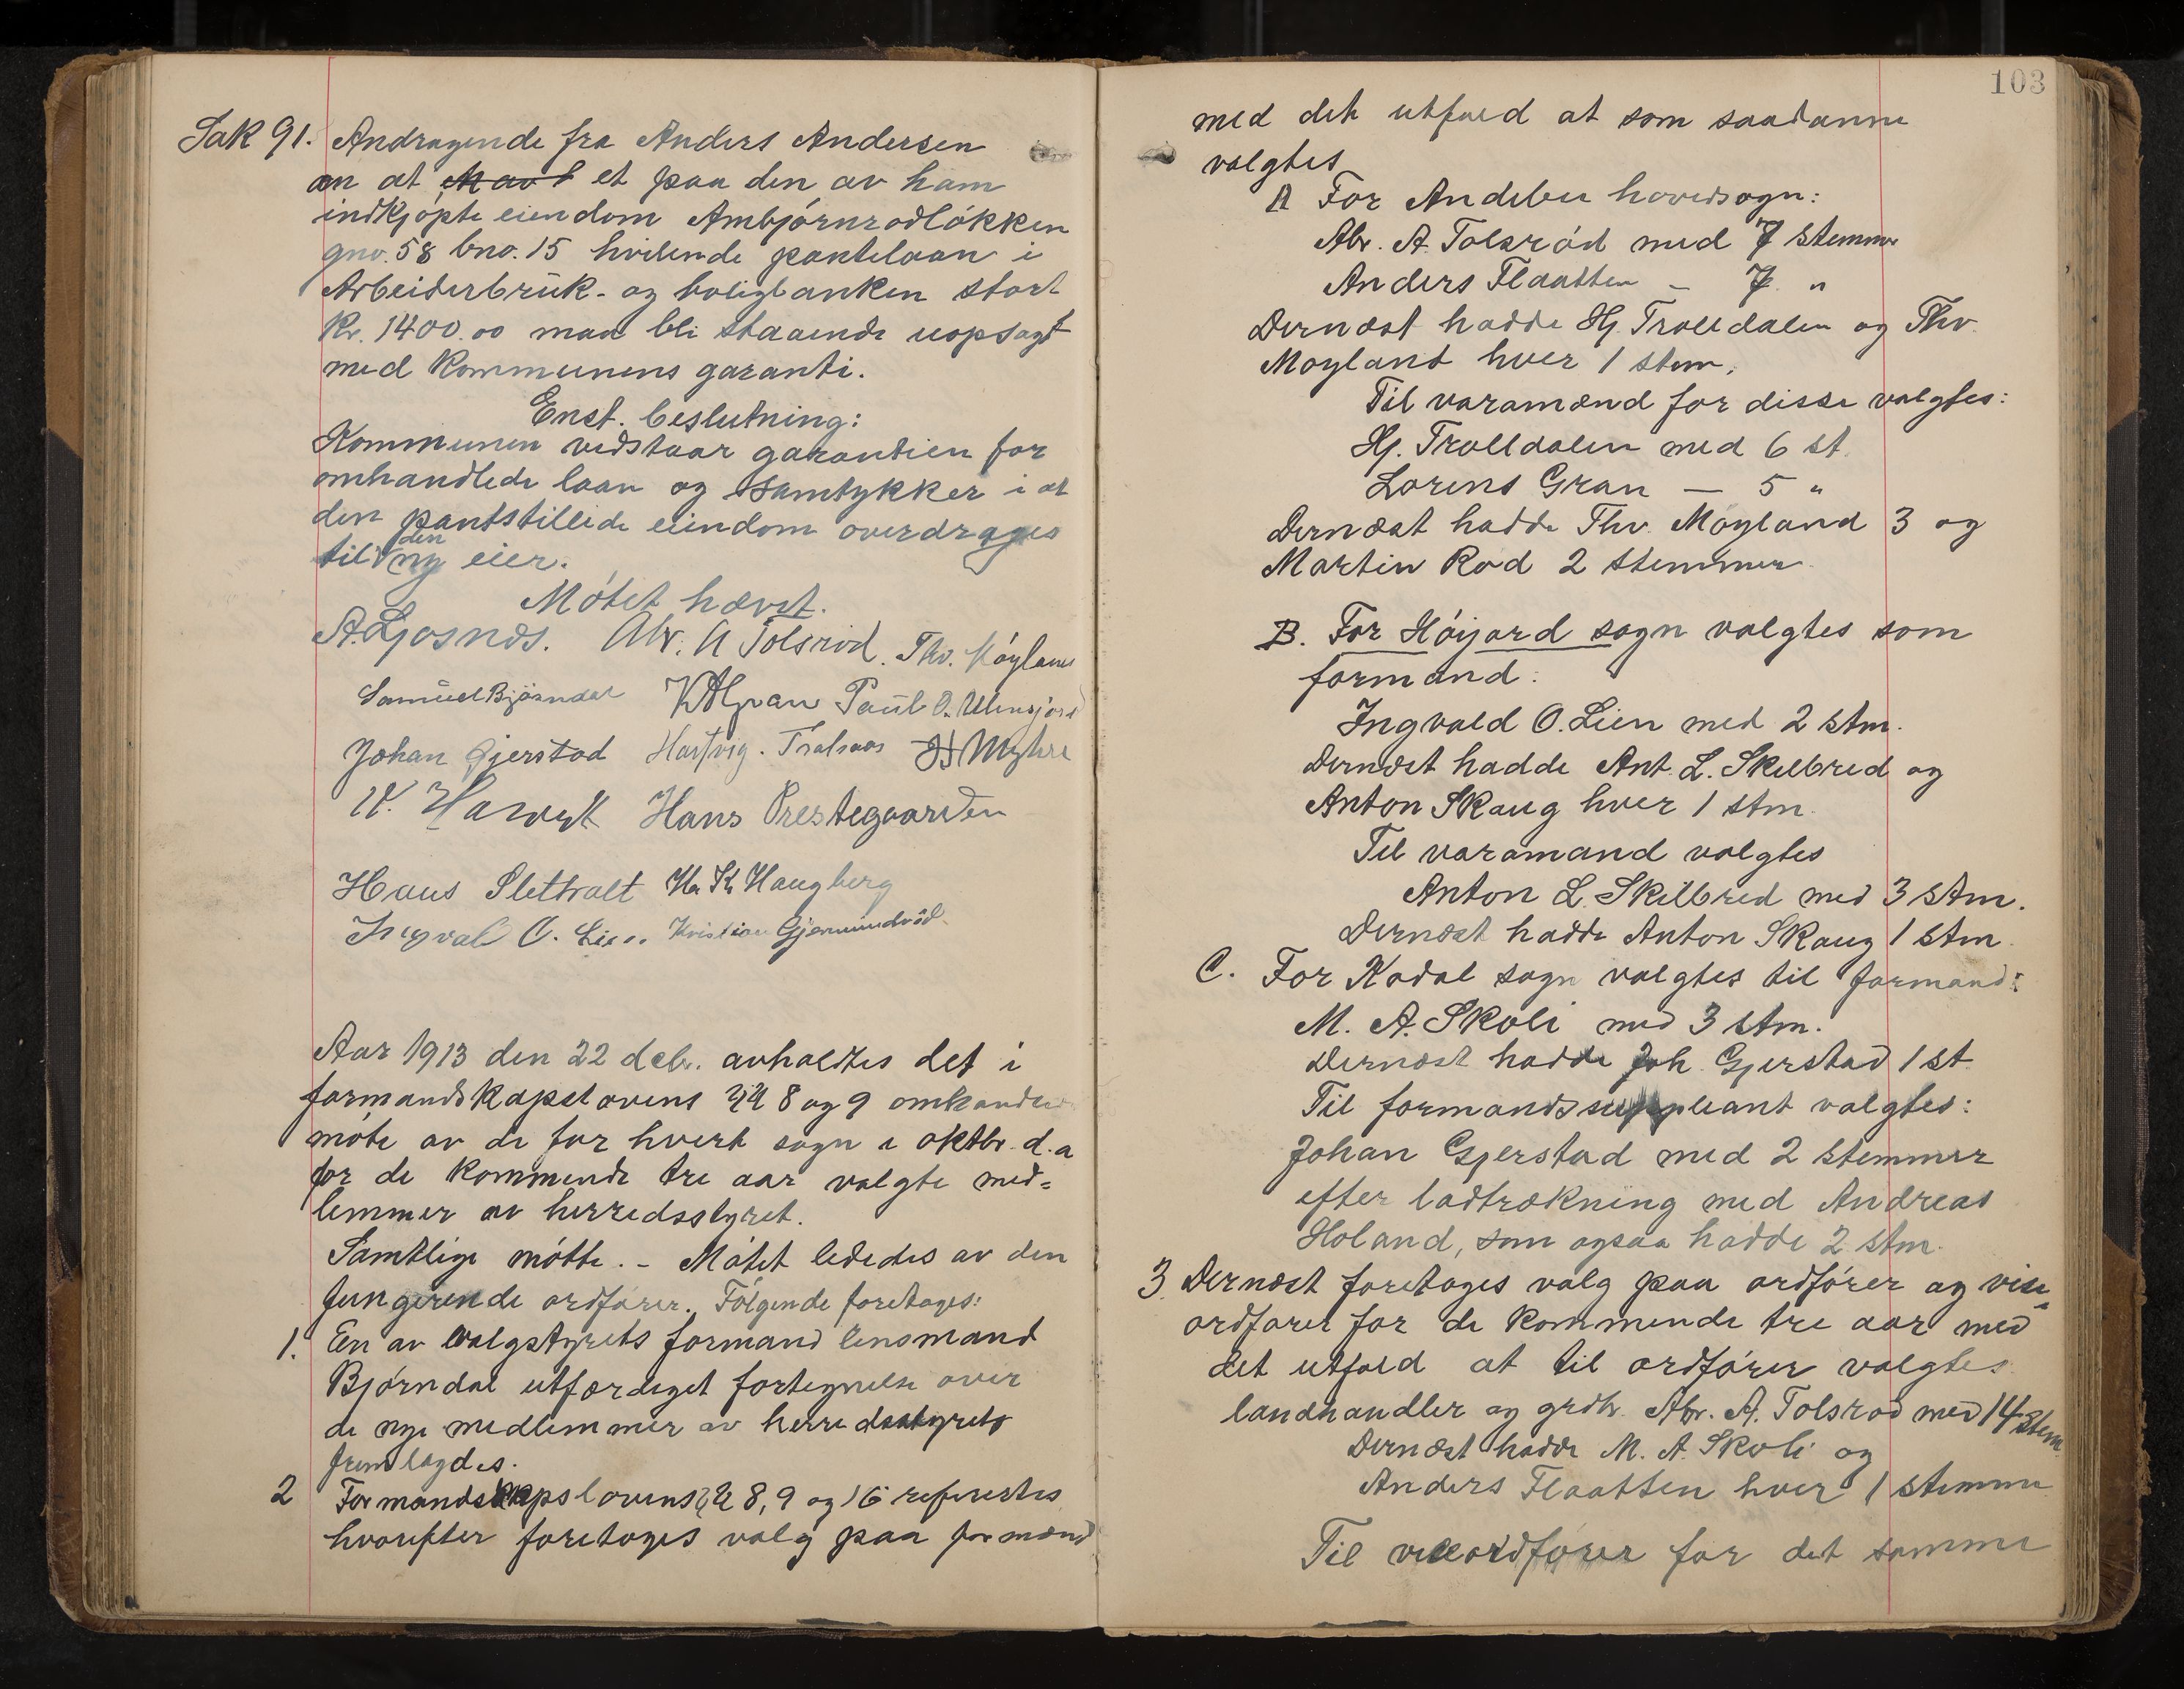 Sak 91. Andragende fra Anders Andersen
om at et paa den av ham
indkjøpte eiendom Ambjørnrødløkken
gno. 58 bno. 15 hvilende pantelaan i
Arbeiderbruk- og boligbanken stort
Kr. 1400.00 maa bli staaende uopsagt
med kommunens garanti.
Enst. beslutning:
Kommunen vedstaar garantien for
omhandlede laan og samtykker i at
den pantstillede eiendom overdrages
til den ny eier.
Møtet hævet.
A. Gjosnæs. Abr. A Tolsrød. Thv. Møyland
Samuel Bjørndal Paul O.
Johan Gjerstad Hartvig. Tralsaas Myhre
Hans Prestegaarden
Hans Slettvalt Haugberg
Ingval O. Lien. Kristian Gjermundrød.
Aar 1913 den 22 debr. avholdtes det i
formandskapslovens §§ 8 og 9 omhandlede
møte av de for hvert sogn i oktbr. d.a
for de kommende tre aar valgte med=
lemmer av herredsstyret.
Samtlige møtte. - Møtet lededes av den
fungerende ordfører. Følgende foretoges:
1. En av valgstyrets formand lensmand
Bjørndal utfærdiget fortegnelse over
de nye medlemmer av herredsstyrets
fremlagdes.
2 Formandskapslovens §§ 8, 9 og 16 referertes
hvorefter foretoges valg paa formænd
103
med det utfald at som saadanne
valgtes
A For Andebu hovedsogn:
Abr. A. Tolsrød med 7 stemmer
Anders Flaatten - 7 "
Dernæst hadde Hj. Trolldalen og Thv.
Møyland hver 1 stem.
Til varamænd for disse valgtes:
Hj. Trolldalen med 6 st.
Lorens Gran - 5 "
Dernæst hadde Thv. Møyland 3 og
Martin Rød 2 stemmer.
B. For Høijord sogn valgtes som
formand:
Ingvald O. Lien med 2 stm.
Dernæst hadde Ant. L. Skilbred og
Anton Skaug hver 1 stm.
Til varamand valgtes
Anton L. Skilbred med 3 stm.
Dernæst hadde Anton Skaug 1 stm.
C. For Kodal sogn valgtes til formand:
M. A. Skoli med 3 stm.
Dernæst hadde Joh. Gjerstad 1 st.
Til formandssuppleant valgtes:
Johan Gjerstad med 2 stemmer
efter lodtrækning med Andreas
Holand, som ogsaa hadde 2 stm.
3. Dernæst foretoges valg paa ordfører og vise=
ordfører for de kommende tre aar med
det utfald at til ordfører valgtes
landhandler og grdbr. Abr. A. Tolsrød med 14 stem.
Dernæst hadde M. A. Skoli og
Anders Flaatten hver 1 stemme
Til viseordfører for det samme